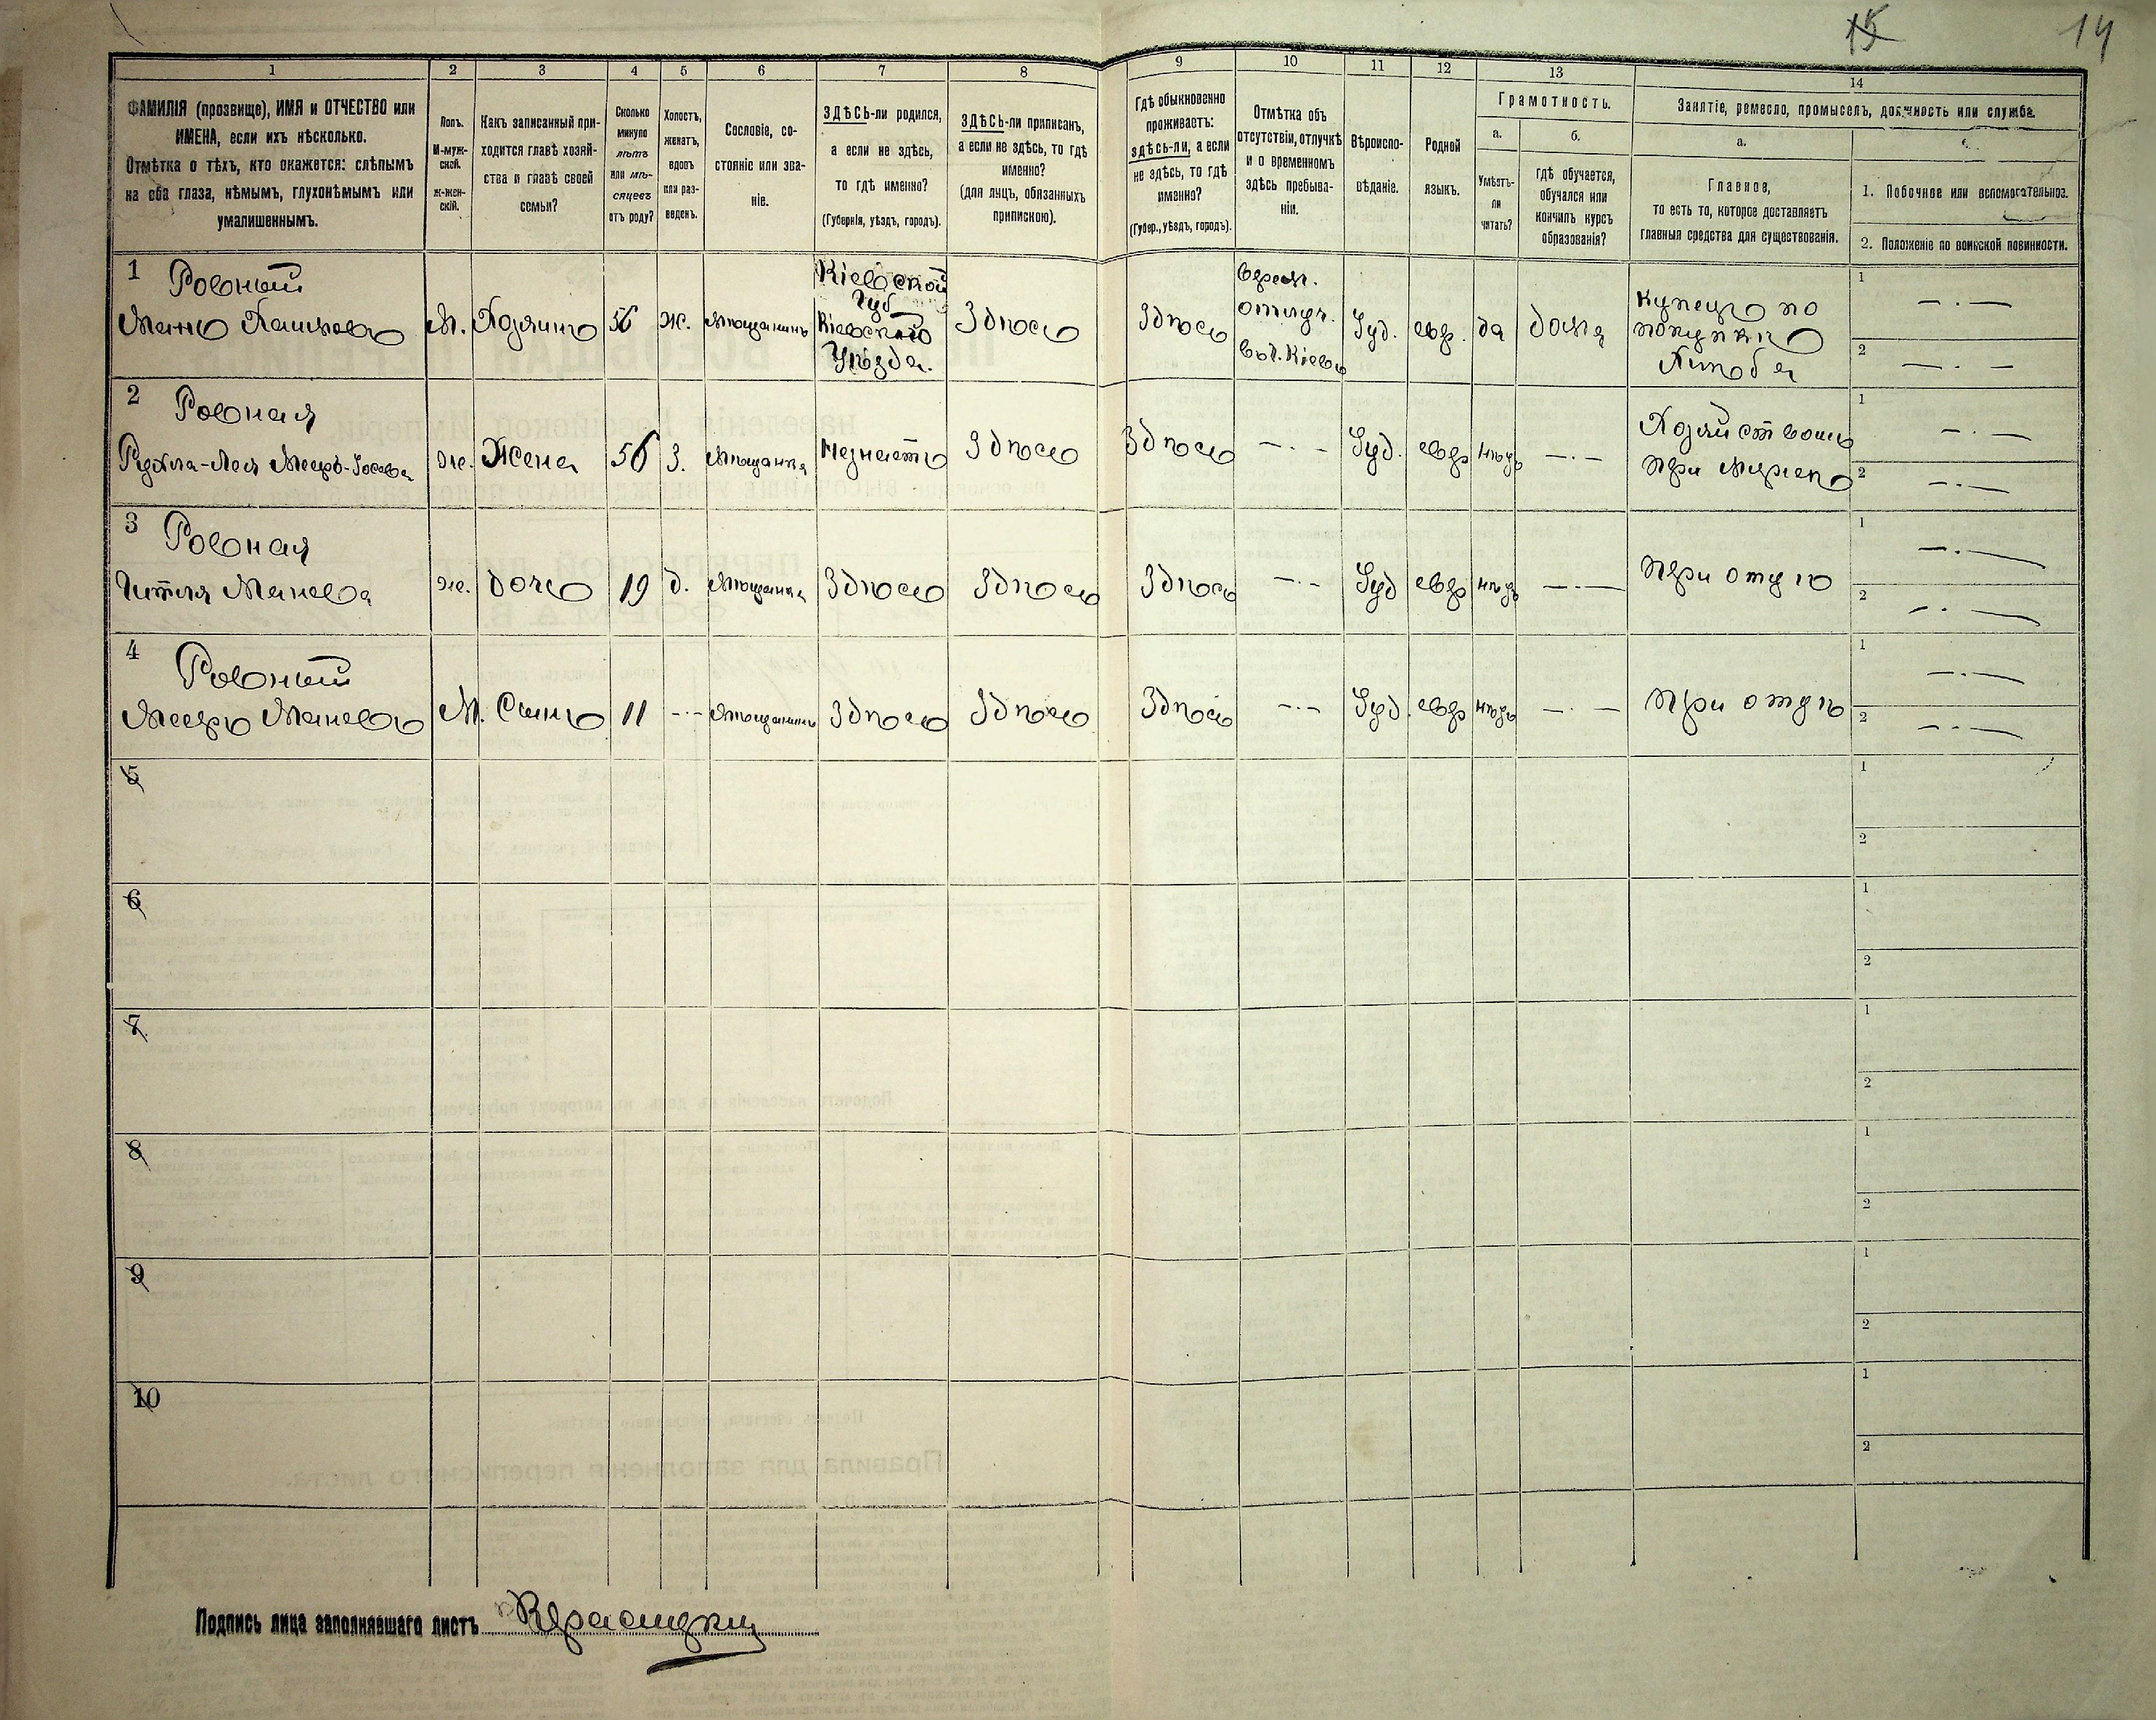 15 14
1 2 3 4 5 6 7 8 9 10 11 12 13 14
ФАМИЛІЯ (прозвище), ИМЯ и ОТЧЕСТВО или
ИМЕНА, если ихъ нѣсколько.
Отмѣтка о тѣхъ, кто окажется: слѣпымъ
на оба глаза, нѣмымъ, глухонѣмымъ или
умалишеннымъ.
Полъ.
М-муж-
ской.
ж-жен-
скій.
Какъ записанный при-
ходится главѣ хозяй-
ства и главѣ своей
семьи?
Сколько
минуло
лѣтъ
или мѣ-
сяцевъ
отъ роду?
Холостъ,
женатъ,
вдовъ
или раз-
веденъ.
Сословіе, со-
стояніе или зва-
ніе.
ЗДѢСЬ-ли родился,
а если не здѣсь,
то гдѣ именно?
(Губернія, уѣздъ, городъ).
ЗДѢСЬ-ли приписанъ,
а если не здѣсь, то гдѣ
именно?
(для лицъ, обязанныхъ
припискою).
Гдѣ обыкновенно
проживаетъ:
здѣсь-ли, а если
не здѣсь, то гдѣ
именно?
(Губер., уѣздъ, городъ).
Отмѣтка объ
отсутствіи, отлучкѣ
и о временномъ
здѣсь пребыва-
ніи.
Вѣроиспо-
вѣданіе.
Родной
языкъ.
Грамотность.
а.
Умѣетъ-
ли
читать?
б.
гдѣ обучается,
обучался или
кончилъ курсъ
образованія?
Занятіе, ремесло, промыселъ, должность или служба.
а.
Главное,
то есть то, которое доставляетъ
главныя средства для существованія.
1. Побочное или вспомогательное.
2. Положеніе по воинской повинности.
1 Ровный
М. Хозяинъ 56 ж. Мѣщанинъ
Кіевской
Губ
Кіевскаго
Уѣзда.
Здѣсь Здѣсь
врем.
отлуч.
въ г. Кіевъ
Іуд. евр. да дома
Купецъ по
покупкѣ
Хлѣба
1 —·—
2 —·—
2 Ровная
же. Жена 56 З. Мѣщанка Незнаетъ Здѣсь Здѣсь —·— Іуд. евр нѣтъ —·—
Хозяйствомъ
при мужѣ
1 —·—
2 —·—
3 Ровная
Гитля Манева же. дочь 19 д. Мѣщанка Здѣсь Здѣсь Здѣсь —·— Іуд евр нѣтъ —·— при отцѣ
1 —·—
2 —·—
4 Ровный
Мееръ Маневъ М. Сынъ 11 —·— Мѣщанинъ Здѣсь Здѣсь Здѣсь —·— Іуд. евр нѣтъ —·— при отцѣ
1 —·—
2 —·—
5 1
2
6 1
2
7 1
2
8 1
2
9 1
2
10 1
2
Подпись лица заполнявшаго листъ